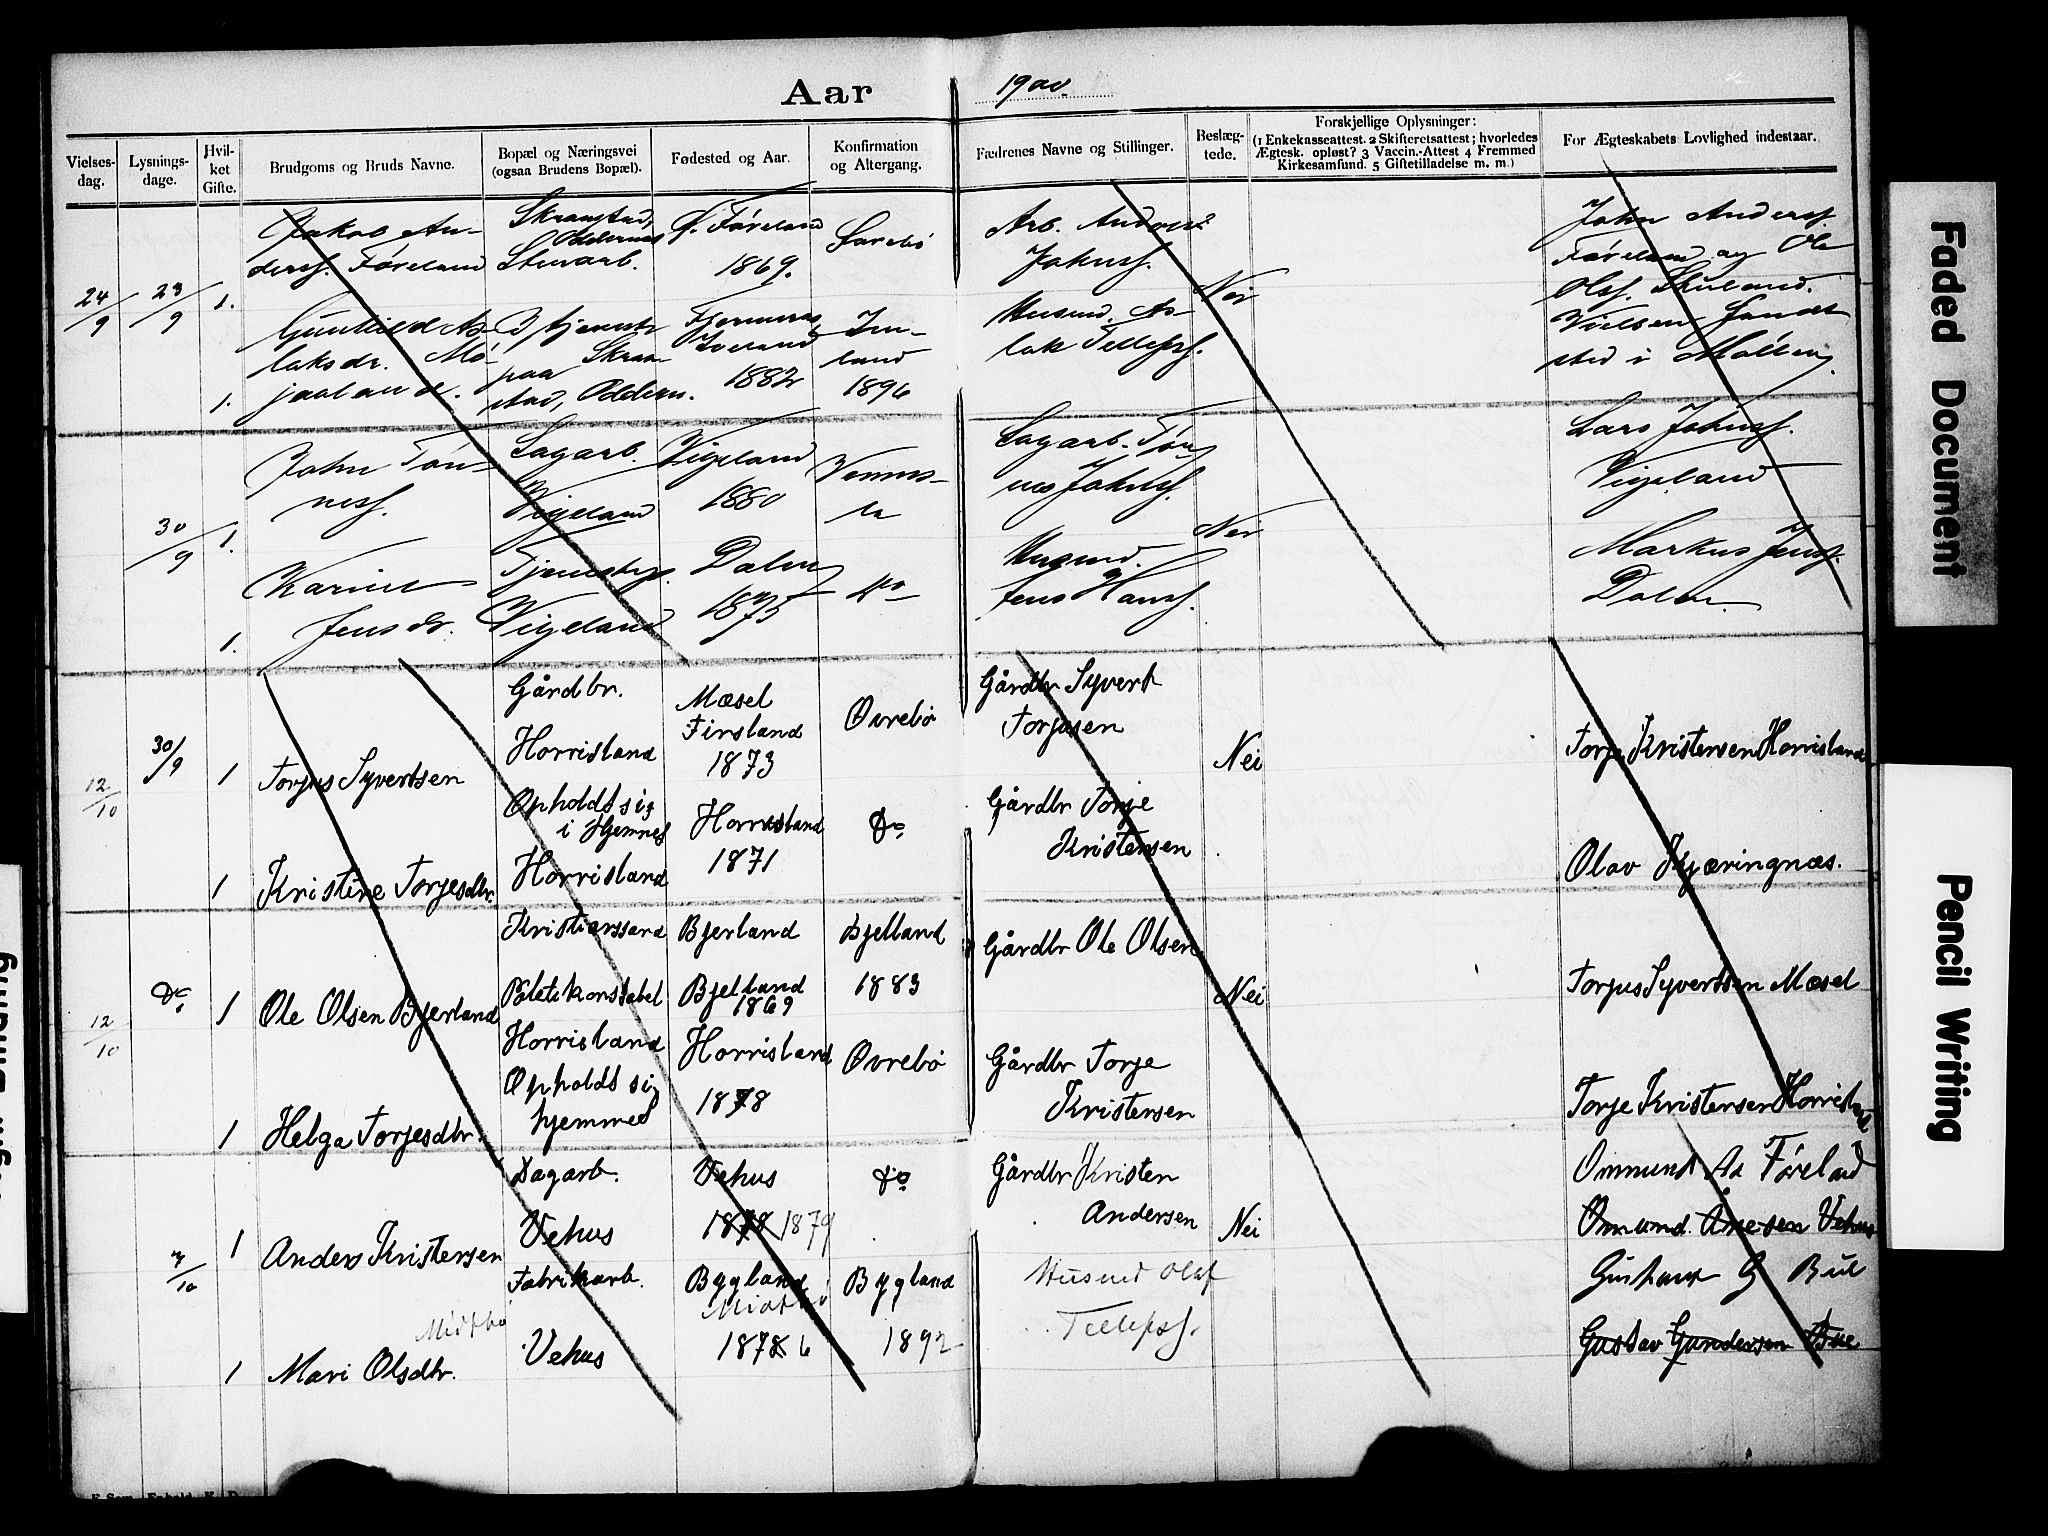 Aar 1900.
Vielses-dag. Lysnings-dage. Hvil-ket Gifte. Brudgoms og Bruds Navne. Bopæl og Næringsvei (ogsaa Brudens Bopæl). Fødested og Aar. Konfirmation og Altergang. Fædrenes Navne og Stillinger. Beslæg-tede. Forskjellige Oplysninger: (1 Enkekasseattest. 2 Skifteretsattest; hvorledes Ægtesk. opløst? 3 Vaccin.-Attest 4 Fremmed Kirkesamfund. 5 Giftetilladelse m. m.) For Ægteskabets Lovlighed indestaar.
24/9 23/9 1.
Jakob An-
derss. Føreland
Oddernes
Ø. Føreland
1869.
Arb. Anders
Jakobs.
Nei
John Anderss.
Føreland og Ole
Ols.
1.
Gunhild As-
laksdr. Mø-
jaaland.
paa
stad, Oddern.
Iveland
1882
1896
Husmd. As-
lak Tellefss.
Vielsen fandt
sted i
30/9 1.
John Tøn-
ness.
Sagarb.
Vigeland
Vigeland
1880
Vennes-
la
Sagarb. Tøn
nes Johns.
Nei
Lars Johns.
Vigeland
1.
Karine
Jensdr.
Vigeland
Dalen
1875
do
Husmd.
Jens Hans.
Markus Jens.
Dalen.
12/10 30/9 1
Torjus Syvertsen
Gårdbr.
Horrisland
Mæsel
Firsland
1873
Øvrebø
Gårdbr Syvert
Torjusen
Nei
Torje Kristensen Horrisland
1
Kristine Torjesdtr.
Opholdt sig
i Hjemmet
Horrisland
Horrisland
1871
Do.
Gårdbr Torje
Kristensen
Olav Kjæringnæs.
12/10 Do. 1
Ole Olsen Bjerland
Kristianssand
Politikonstabel
Bjerland
Bjelland
1869
Bjelland
1883
Gårdbr Ole Olsen
Nei
Torjus Syvertsen Mæsel
1
Helga Torjesdtr.
Horrisland
Opholdt sig
hjemmed
Horrisland
1878
Øvrebø
Gårdbr Torje
Kristensen
Torje Kristensen Horrisland
7/10 1
Anders Kristensen
Dagarb.
Vehus
Vehus
1878 1879
do
Gårdbr Kristen
Andersen
Nei
Ommund Aa Føreland
Omund Ånesen Vehus
1
Mari Olsdtr.
Midtbø
Fabrikarb.
Vehus
Bygland
Midtbø
1878 6
Bygland
1892
Husmd Olaf
Tellefss.
Gustav G Bue
Gustav Gundersen Bue
Faded Document
Pencil Writing